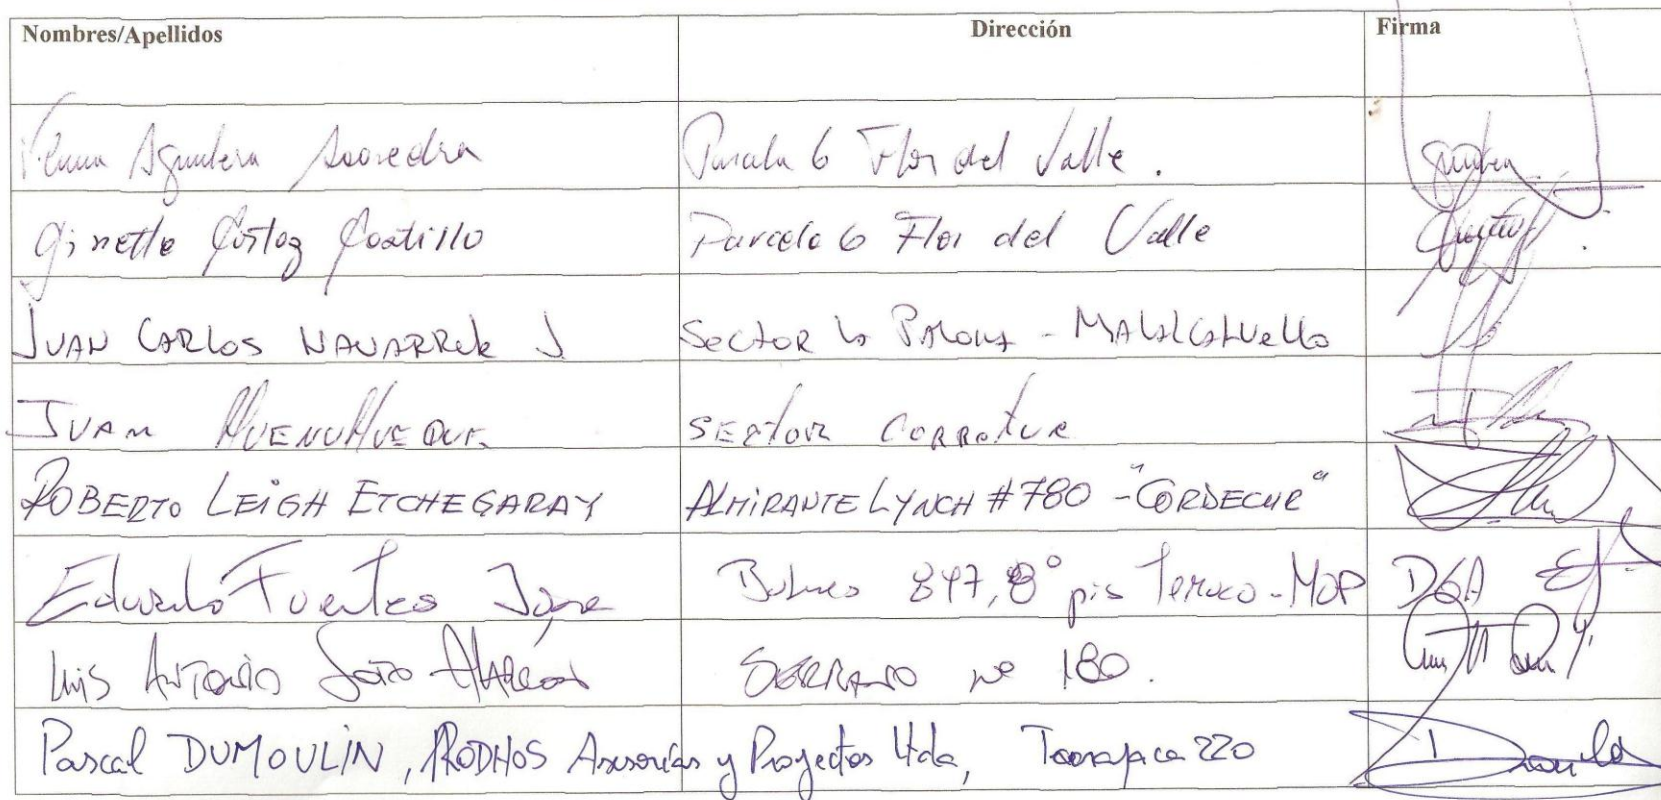 Nombres/Apellidos Dirección Firma
Aguilera Saavedra Parcela 6 Flor del Valle.
Ginette Cortez Castillo Parcela 6 Flor del Valle
JUAN CARLOS NAVARRETE J. Sector la Paloma - MALALCAHUELLO
JUAN HUENUHUEQUE SECTOR
ROBERTO LEIGH ETCHEGARAY ALMIRANTE LYNCH #780 - "CORDECUR"
Eduardo Fuentes Bulnes 897, 8° piso Temuco - MOP DGA
Luis ANTONIO Soto ALARCON SERRANO Nº 180.
Pascal DUMOULIN, RODHOS Asesorías y Proyectos Ltda, Tarapaca 220